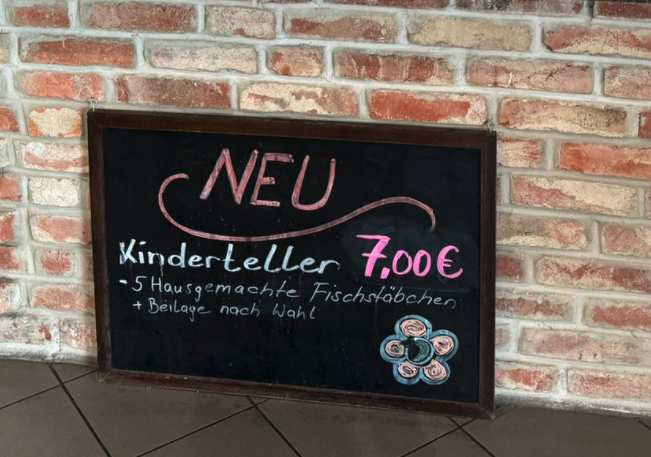 NEU
Kinderteller 7,00€
- 5 Hausgemachte Fischstäbchen
+ Beilage nach Wahl